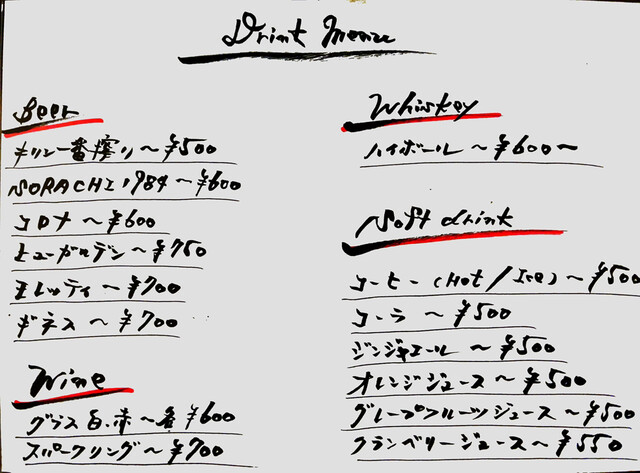 Drink Menu
Beer
キリン一番搾り〜¥500
SORACHI 1984〜¥600
コロナ〜¥600
ヒューガルデン〜¥750
モレッティ〜¥700
ギネス〜¥700
Wine
グラス白・赤〜各¥600
スパークリング〜¥700
Whiskey
ハイボール〜¥600〜
Soft drink
コーヒー(Hot/Ice)〜¥500
コーラ〜¥500
ジンジャエール〜¥500
オレンジジュース〜¥500
グレープフルーツジュース〜¥500
クランベリージュース〜¥550